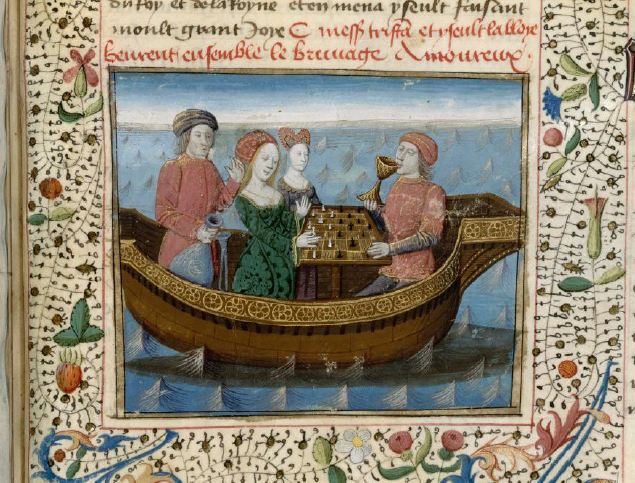 du roy et de la royne et en mena yseult faisant
moult grant Joye C mess tristã et yseult la bloye
beurent ensemble le bruvage Amoureux.